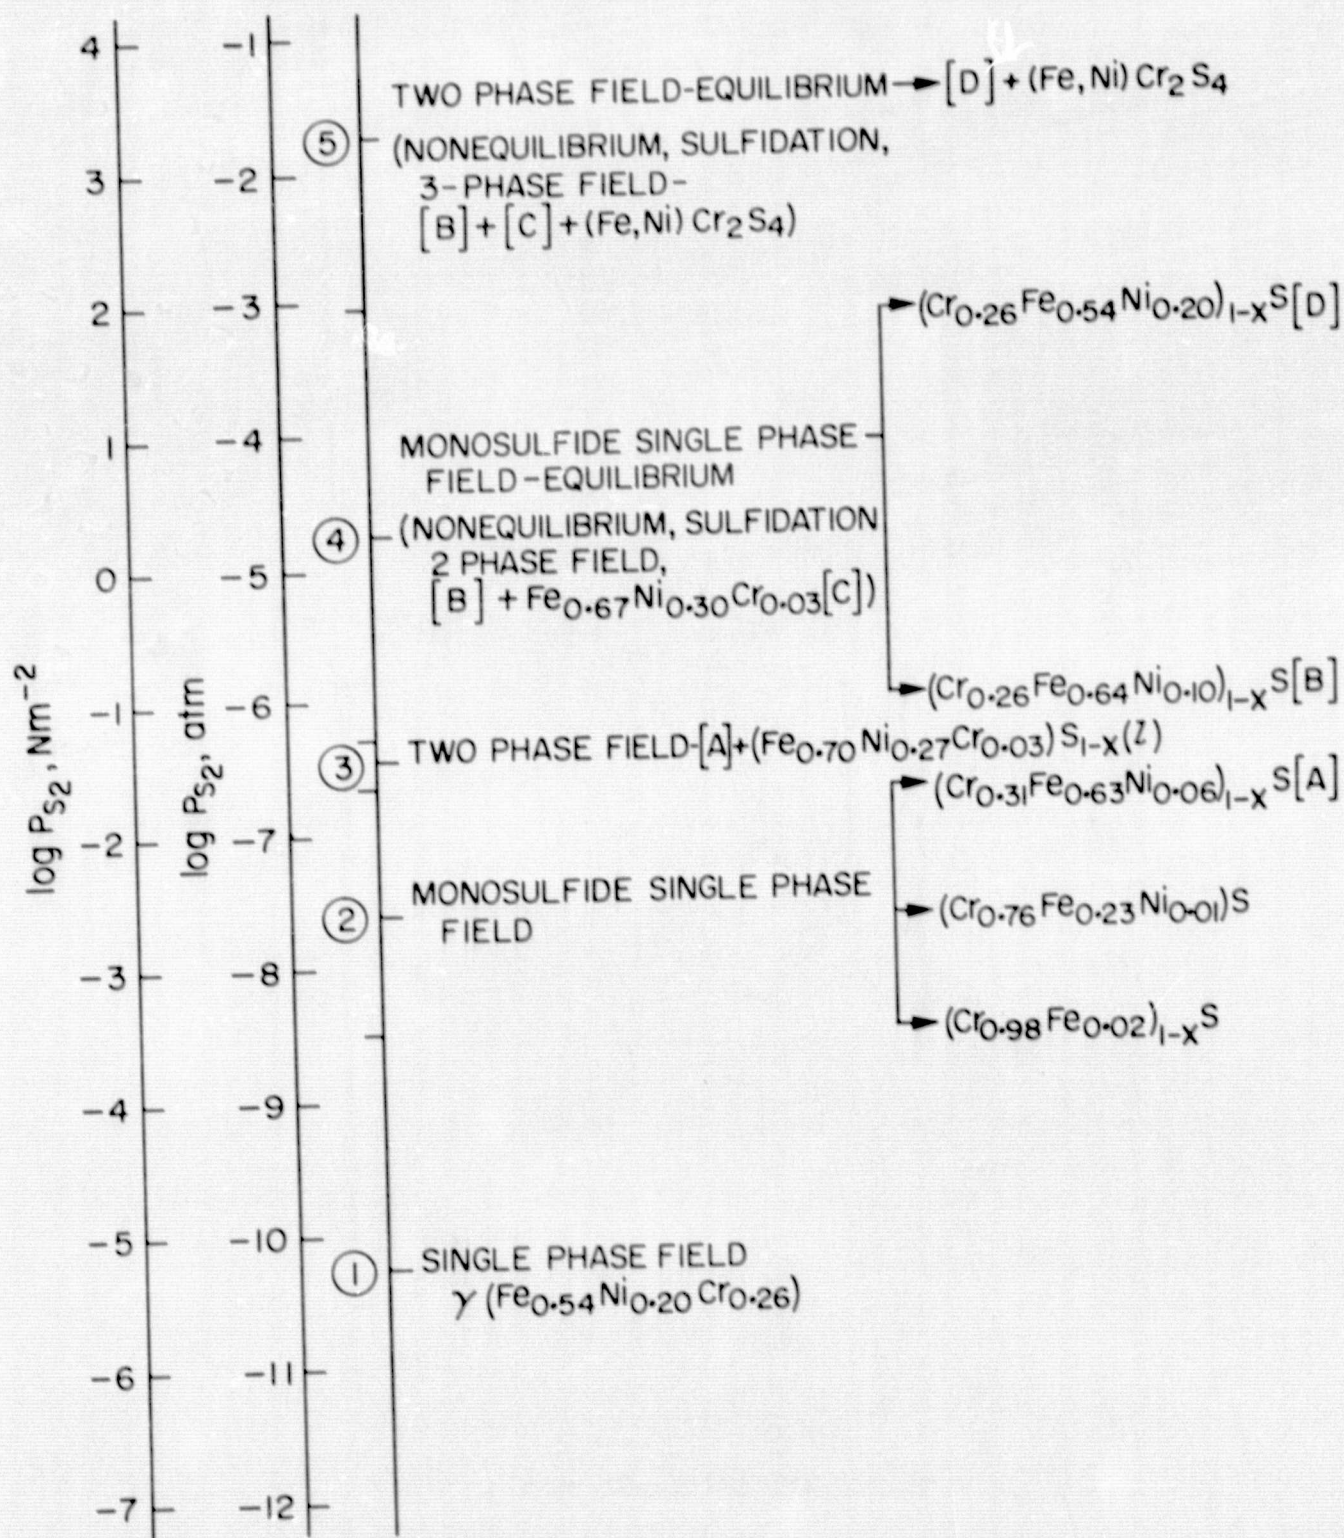 4
3
2
1
0
-1
-2
-3
-4
-5
-6
-7
log P_S2, Nm⁻²
-1
-2
-3
-4
-5
-6
-7
-8
-9
-10
-11
-12
log P_S2, atm
TWO PHASE FIELD-EQUILIBRIUM → [D] + (Fe,Ni) Cr₂S₄
⑤ (NONEQUILIBRIUM, SULFIDATION,
3-PHASE FIELD-
[B]+[C]+(Fe,Ni) Cr₂S₄)
(Cr₀.₂₆Fe₀.₅₄Ni₀.₂₀)₁₋ₓS[D]
MONOSULFIDE SINGLE PHASE
FIELD-EQUILIBRIUM
④ (NONEQUILIBRIUM, SULFIDATION
2 PHASE FIELD,
[B] + Fe₀.₆₇Ni₀.₃₀Cr₀.₀₃[C])
(Cr₀.₂₆Fe₀.₆₄Ni₀.₁₀)₁₋ₓS[B]
③ TWO PHASE FIELD-[A]+(Fe₀.₇₀Ni₀.₂₇Cr₀.₀₃)S₁₋ₓ(l)
(Cr₀.₃₁Fe₀.₆₃Ni₀.₀₆)₁₋ₓS[A]
② MONOSULFIDE SINGLE PHASE
FIELD
(Cr₀.₇₆Fe₀.₂₃Ni₀.₀₁)S
(Cr₀.₉₈Fe₀.₀₂)₁₋ₓS
① SINGLE PHASE FIELD
γ (Fe₀.₅₄Ni₀.₂₀Cr₀.₂₆)